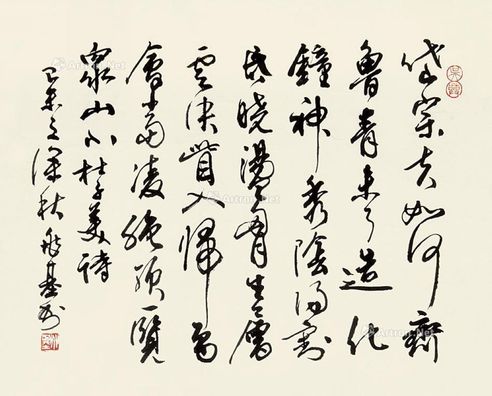 岱宗夫如何齊
魯青未了造化
鐘神秀陰陽割
昏曉盪胸生層
雲決眥入歸鳥
會當凌絕頂一覽
眾山小杜子美詩
之深秋 基